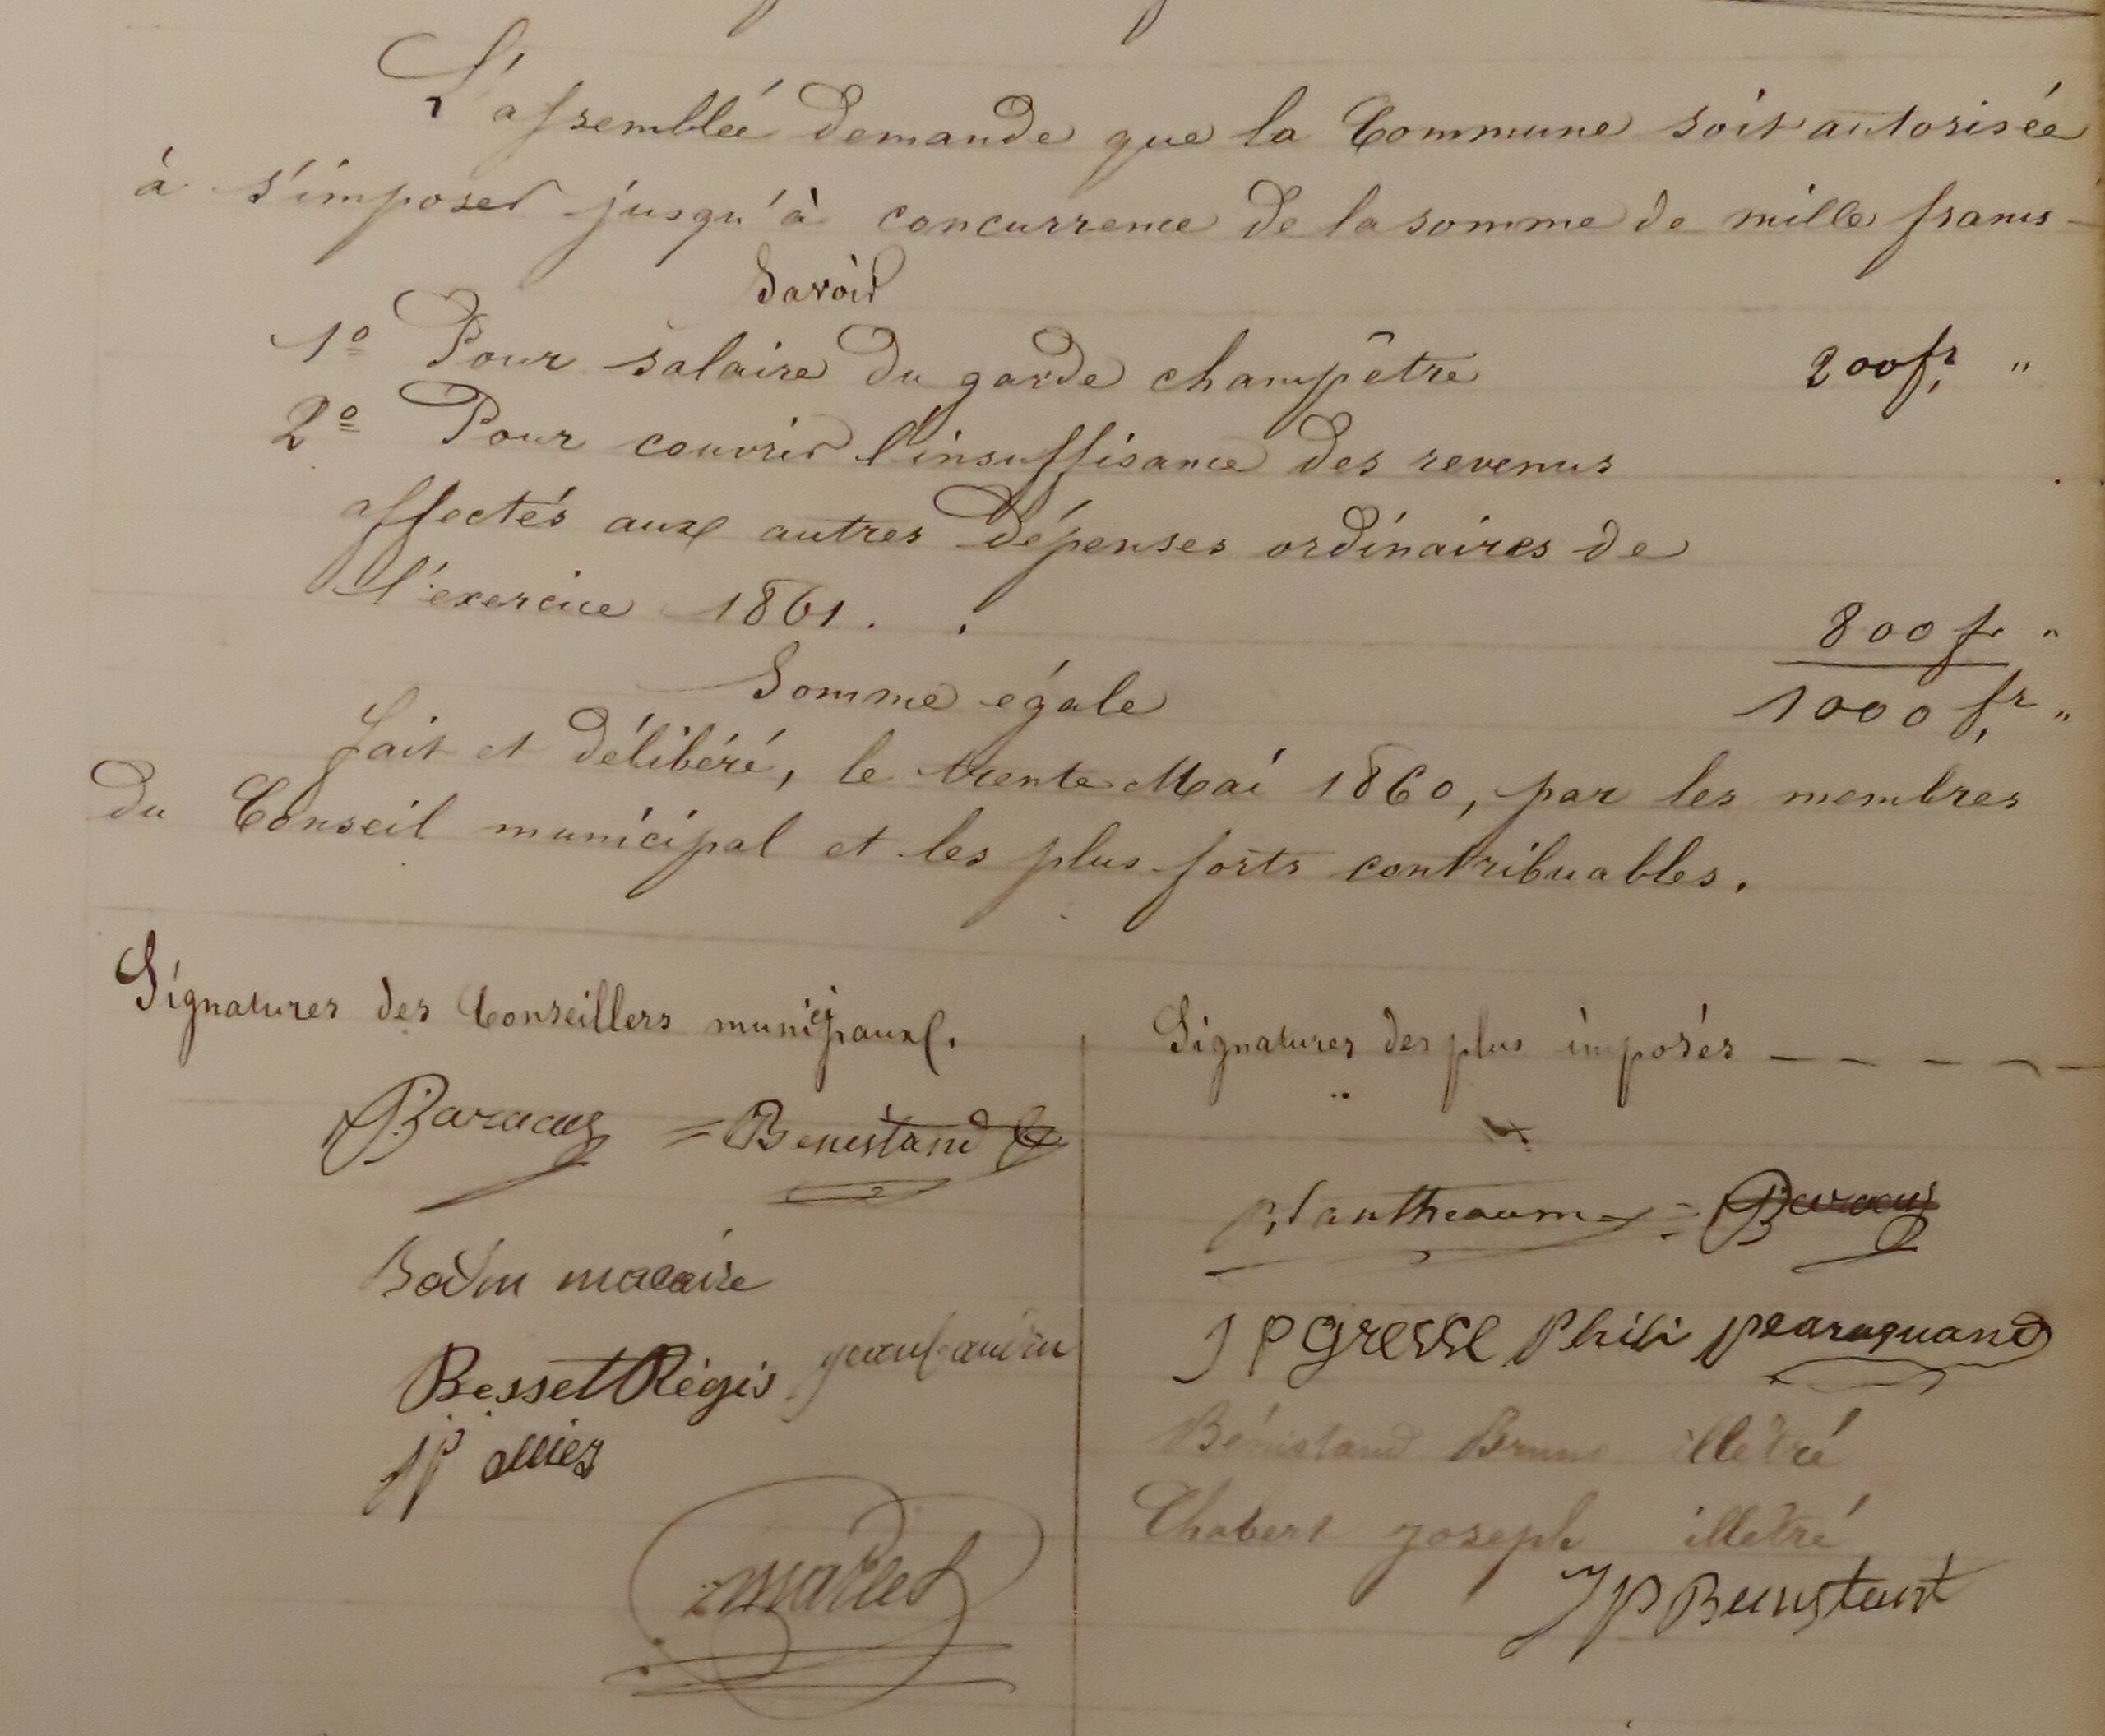 L'assemblée demande que la Commune soit autorisée
à s'imposer jusqu'à concurrence de la somme de mille francs
Savoir
1º Pour salaire du garde champêtre 200 fr, "
2º Pour couvrir l'insuffisance des revenus
affectés aux autres dépenses ordinaires de
l'exercice 1861. . 800 fr "
Somme égale 1000 fr, "
fait et délibéré, le trente Mai 1860, par les membres
du Conseil municipal et les plus forts contribuables.
Signatures des Conseillers municipaux.
Benistand
Bodin macaire
Besset Régis
JP allier
Signatures des plus imposés
Plantheaume
J P Gresse
Bénistand Bruno illétré
Chabert joseph illétré
JP Benistant